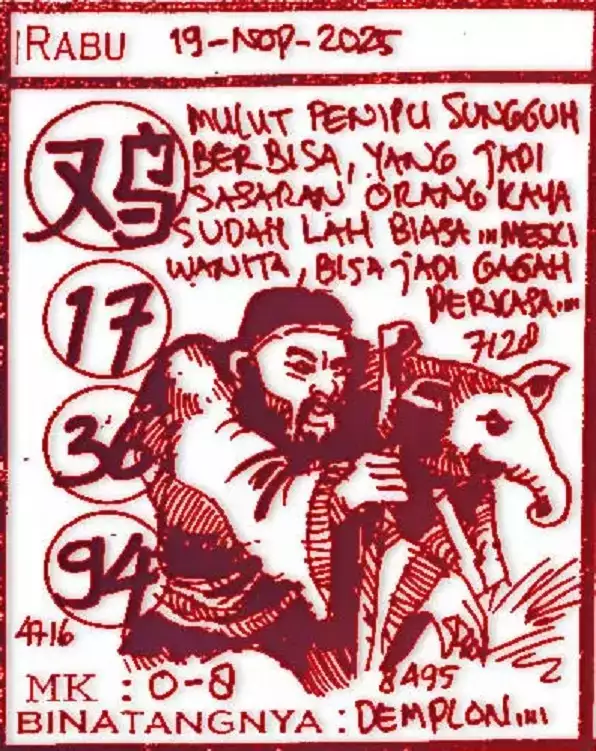 RABU 19-NOP-2025
鸡
MULUT PENIPU SUNGGUH
BERBISA, YANG JADI
SASARAN ORANG KAYA
SUDAH LAH BIASA... MESKI
WANITA, BISA JADI GAGAH
PERKASA....
7128
17
36
94
4716
8495
MK : 0-8
BINATANGNYA : DEMPLON....